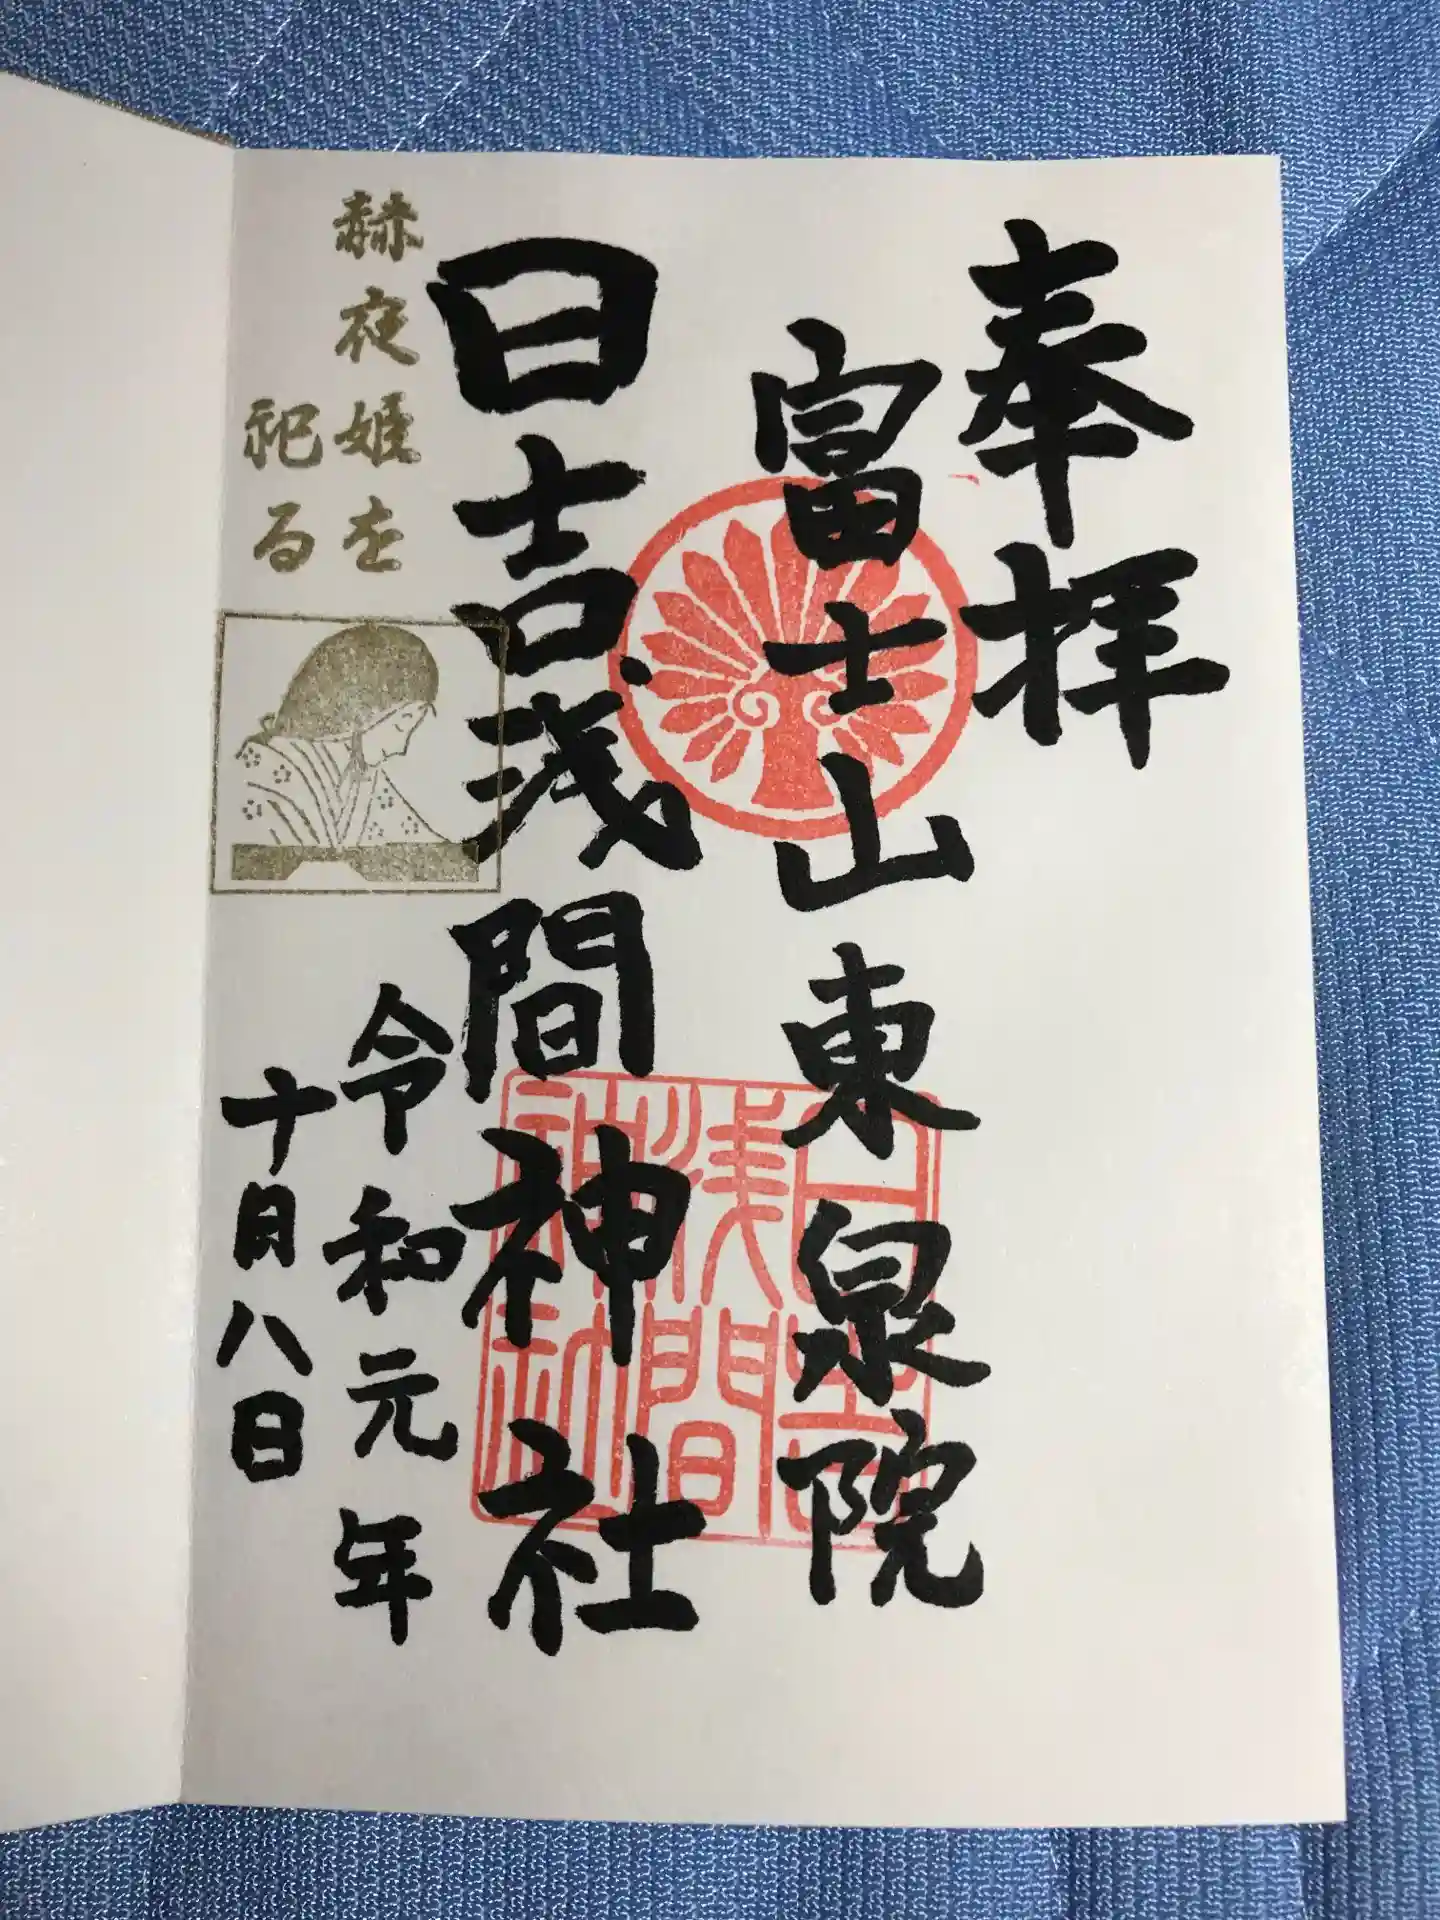 奉拝
富士山東泉院
日吉浅間神社
赫夜姫を
祀る
令和元年
十月八日
日吉
浅間
神社